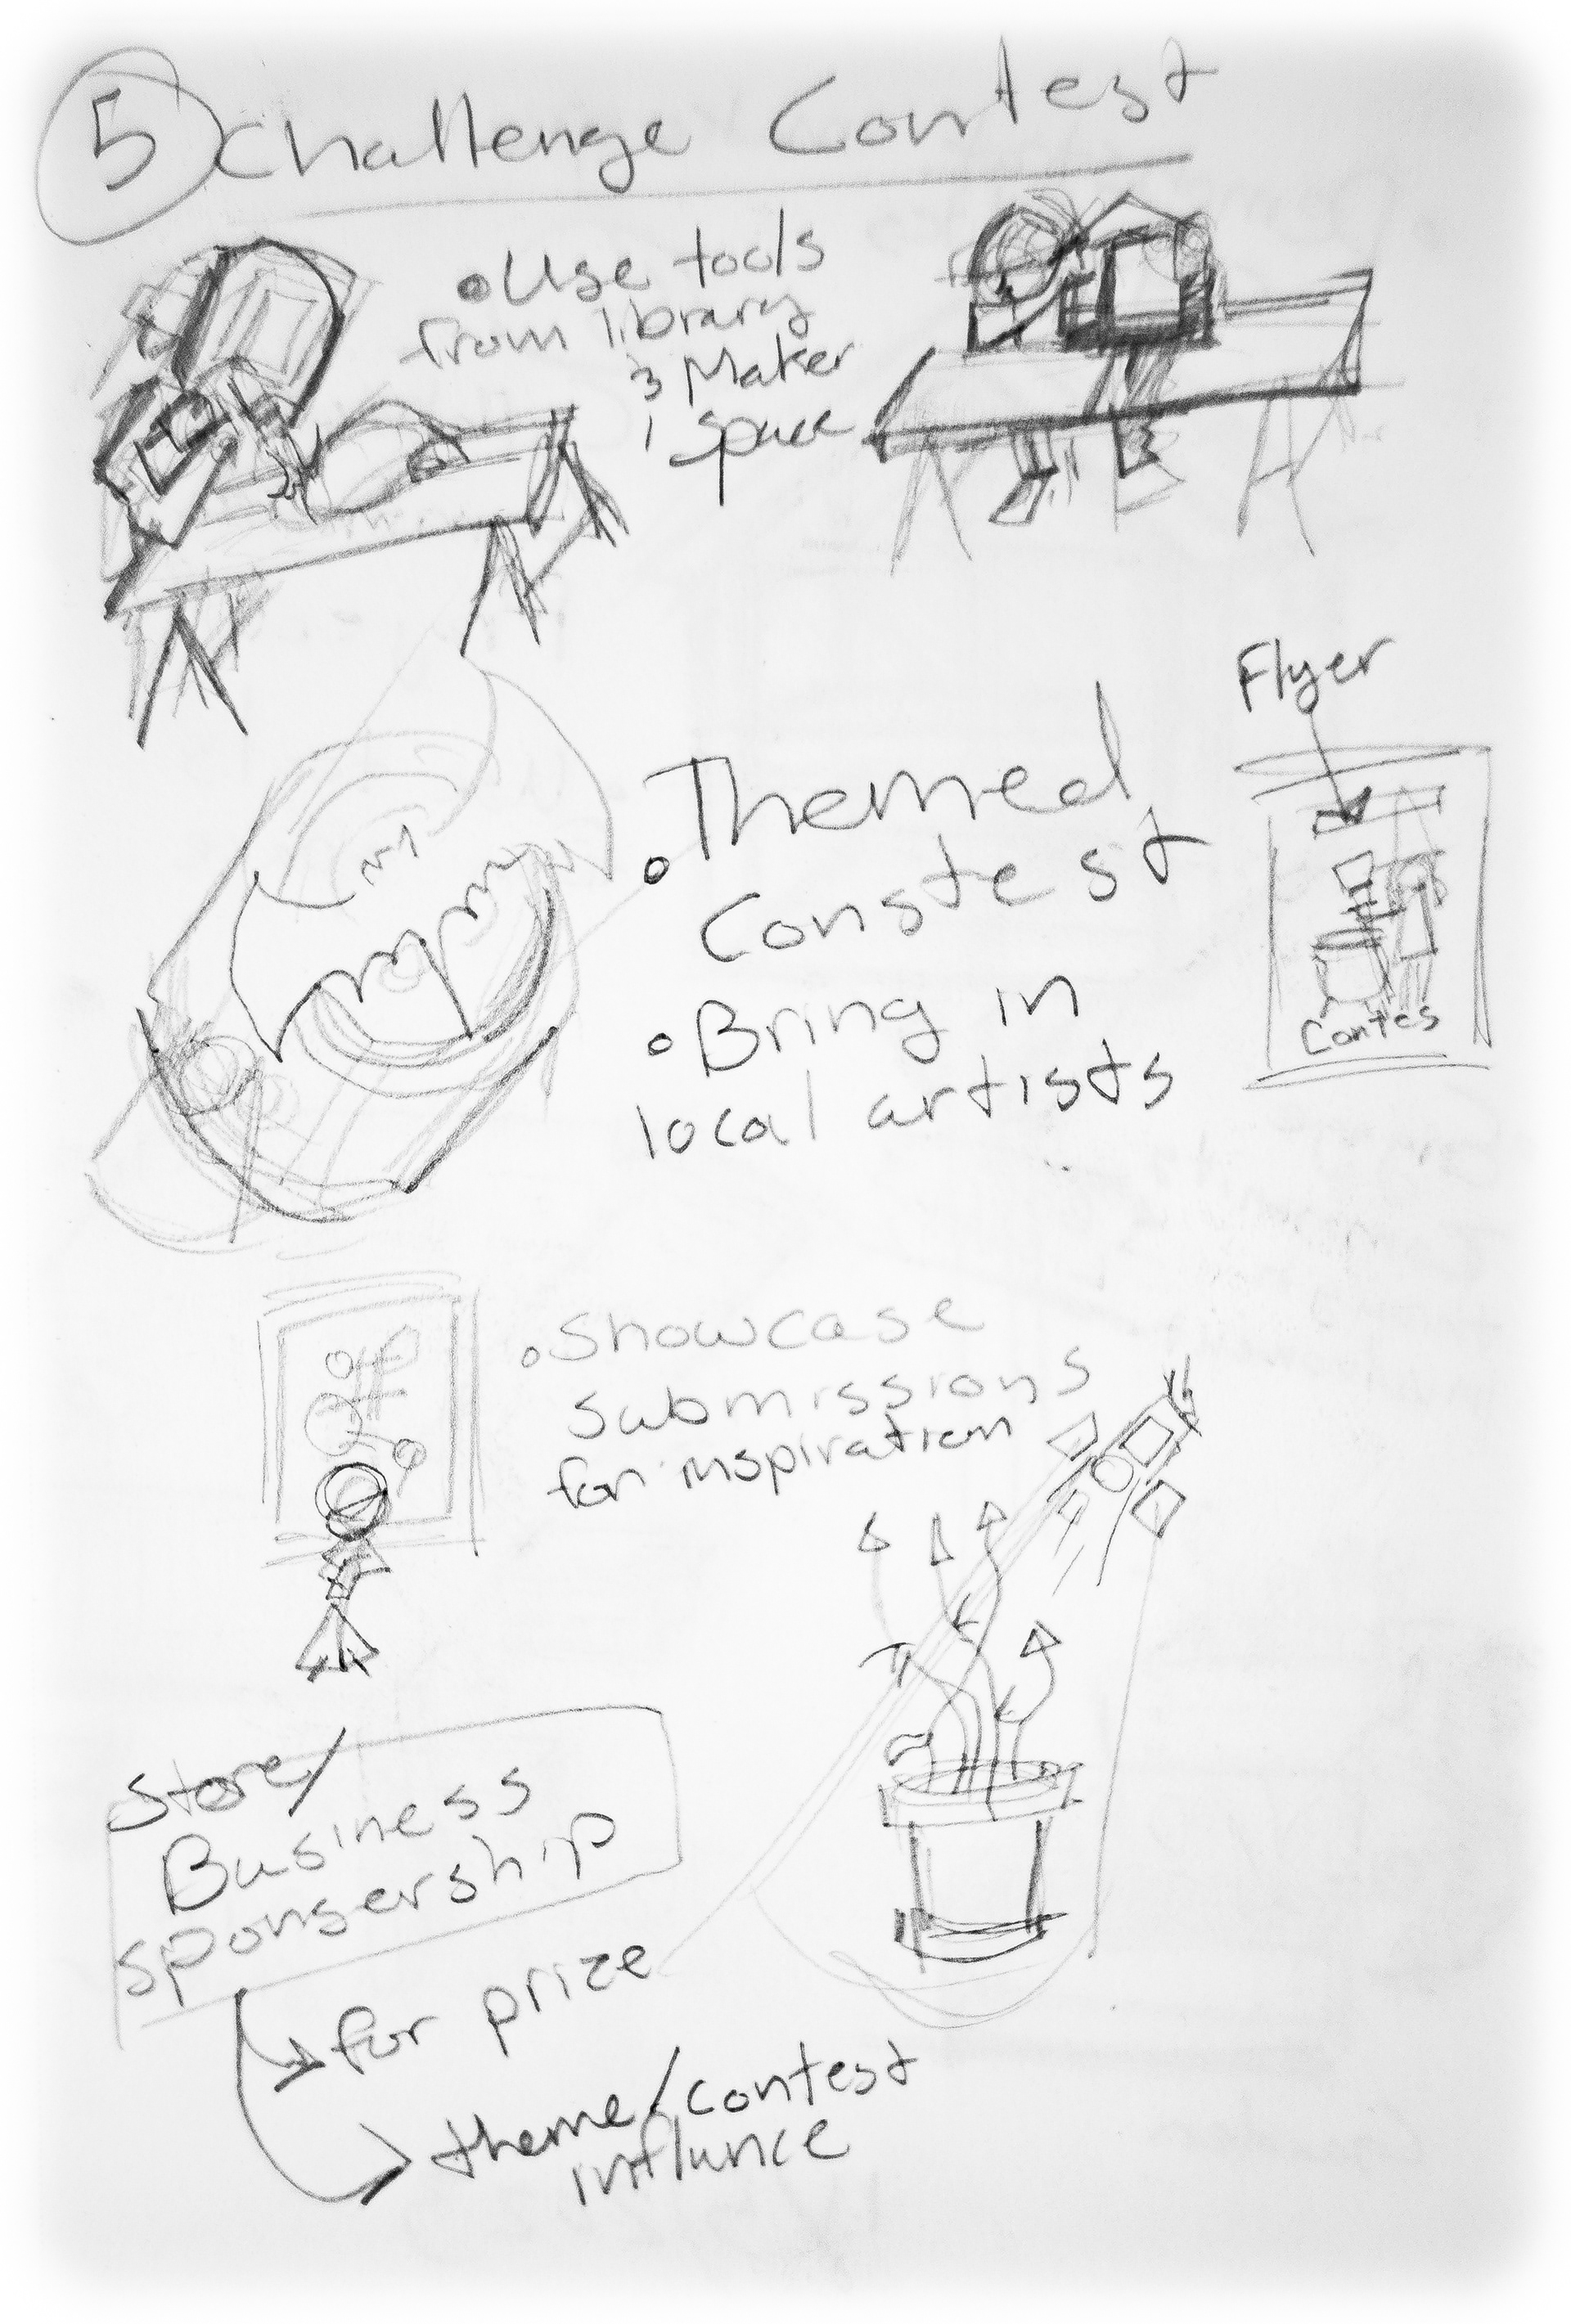 5 Challenge Contest
• Use tools
from library
& Maker
Space
Flyer
Contes
• Themed
Constest
• Bring in
local artists
• Showcase
submissions
for inspiration
Store/
Business
sponsership
for prize
theme/contest
influnce